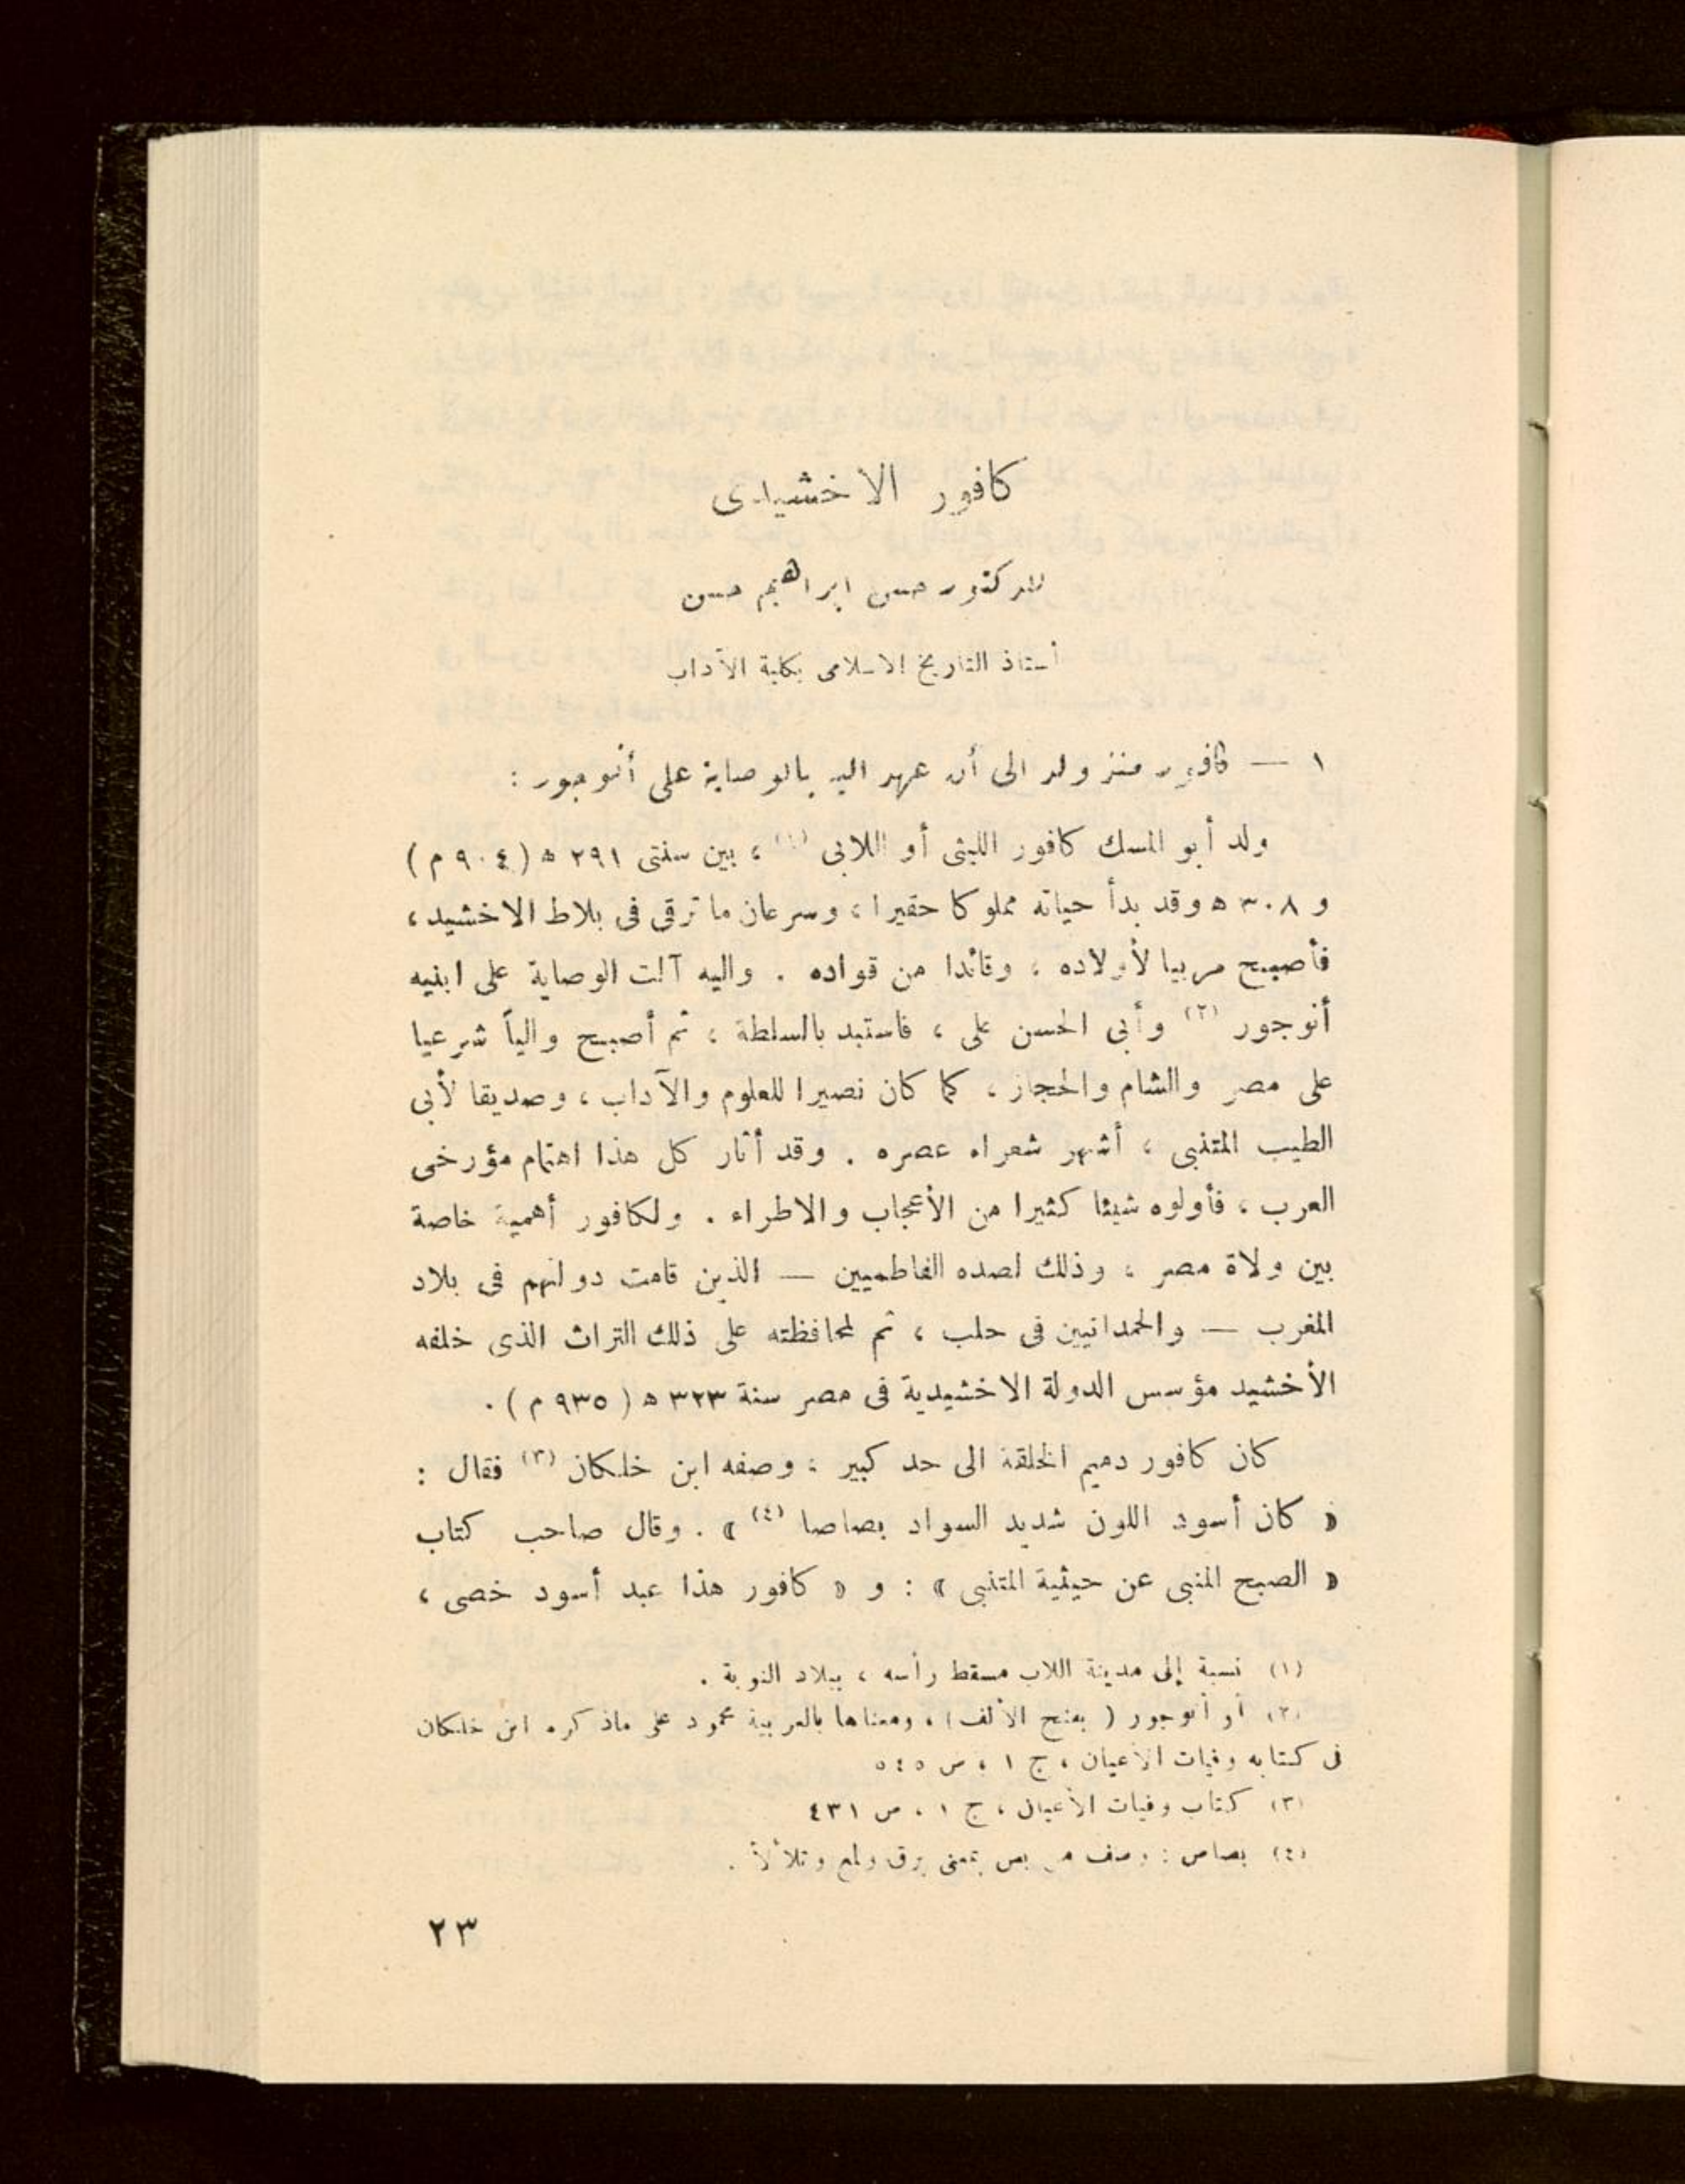 كافور الاخشيدى
للدكتور حسن ابراهيم حسن
أستاذ التاريخ الاسلامى بكلية الآداب
١ — كافور منذ ولد الى أن عهد اليه بالوصاية على أنوجور :
ولد أبو المسك كافور الليثى أو اللابى (١) ، بين سنتى ٢٩١ ه (٩٠٤ م)
و ٣٠٨ ه وقد بدأ حياته مملوكا حقيرا ، وسرعان ما ترقى فى بلاط الاخشيد ،
فأصبح مربيا لأولاده ، وقائدا من قواده . واليه آلت الوصاية على ابنيه
أنوجور (٢) وأبى الحسن على ، فاستبد بالسلطة ، ثم أصبح والياً شرعيا
على مصر والشام والحجاز ، كما كان نصيرا للعلوم والآداب ، وصديقا لأبى
الطيب المتنبى ، أشهر شعراء عصره . وقد أثار كل هذا اهتمام مؤرخى
العرب ، فأولوه شيئا كثيرا من الأعجاب والاطراء . ولكافور أهمية خاصة
بين ولاة مصر ، وذلك لصده الفاطميين — الذين قامت دولتهم فى بلاد
المغرب — والحمدانيين فى حلب ، ثم لمحافظته على ذلك التراث الذى خلفه
الأخشيد مؤسس الدولة الاخشيدية فى مصر سنة ٣٢٣ ه (٩٣٥ م) .
كان كافور دميم الخلقة الى حد كبير ، وصفه ابن خلكان (٣) فقال :
« كان أسود اللون شديد السواد بصاصا (٤) » . وقال صاحب كتاب
« الصبح المنبى عن حيثية المتنبى » : و « كافور هذا عبد أسود خصى ،
(١) نسبة إلى مدينة اللاب مسقط رأسه ، ببلاد النوبة .
(٢) أو أنوجور ( بفتح الألف ) ، ومعناها بالعربية محمود على ماذكره ابن خلكان
فى كتابه وفيات الأعيان ، ج ١ ، ص ٥٤٥
(٣) كتاب وفيات الأعيان ، ج ١ ، ص ٤٣١
(٤) بصاص : وصف من بص بمعنى برق ولمع وتلألأ .
٢٣